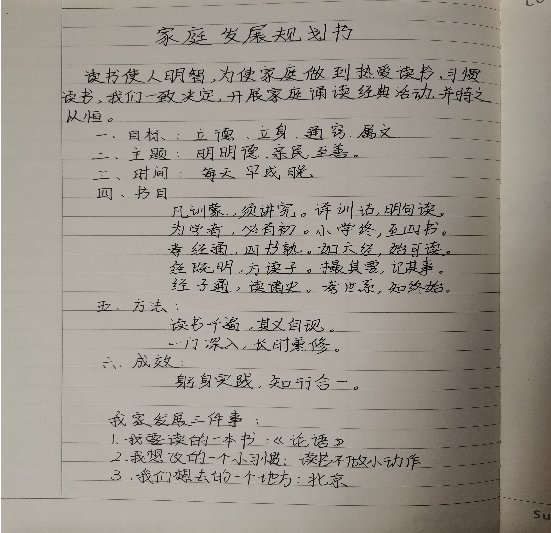 家庭发展规划书
读书使人明智，为使家庭做到热爱读书，习惯
读书，我们一致决定，开展家庭诵读经典活动，并持之
以恒。
一、目标：立德、立身、通窍、属文
二、主题：明明德、亲民、至善。
三、时间：每天早或晚
四、书目
凡训蒙，须讲究。详训诂，明句读。
为学者，必有初。小学终，至四书。
孝经通，四书熟。如六经，始可读。
经既明，方读子。撮其要，记其事。
经子通，读诸史。考世系，知终始。
五、方法：
读书千遍，其义自现。
一门深入，长时熏修。
六、成效：
躬身实践，知行合一。
我家发展三件事：
1.我要读的一本书：《论语》
2.我想改的一个小习惯：读书不做小动作
3.我们想去的一个地方：北京
Su